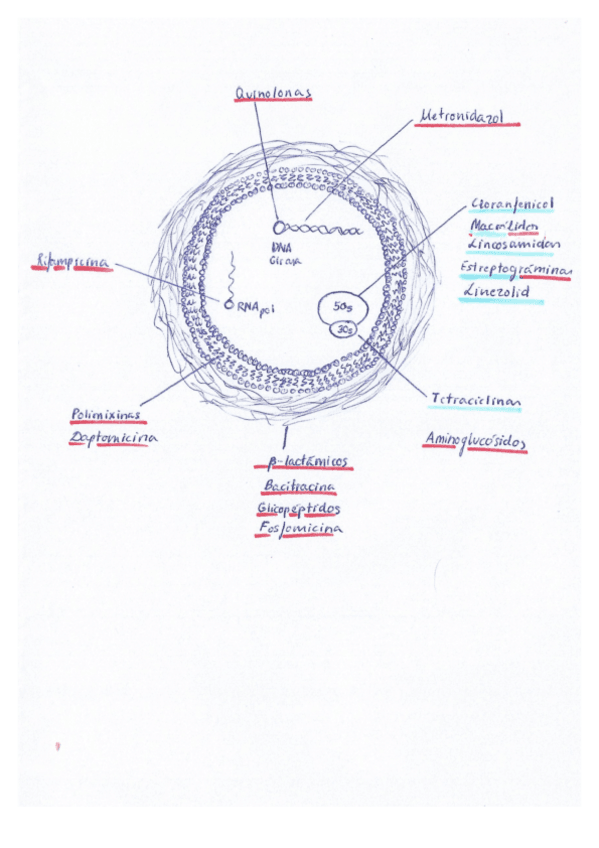 Quinolonas
Metronidazol
Cloranfenicol
Macrólidos
Lincosamidas
Estreptograminas
Linezolid
DNA
Girasa
Rifampicina
RNA pol
50s
30s
Tetraciclinas
Aminoglucósidos
Polimixinas
Daptomicina
β-lactámicos
Bacitracina
Glicopéptidos
Fosfomicina